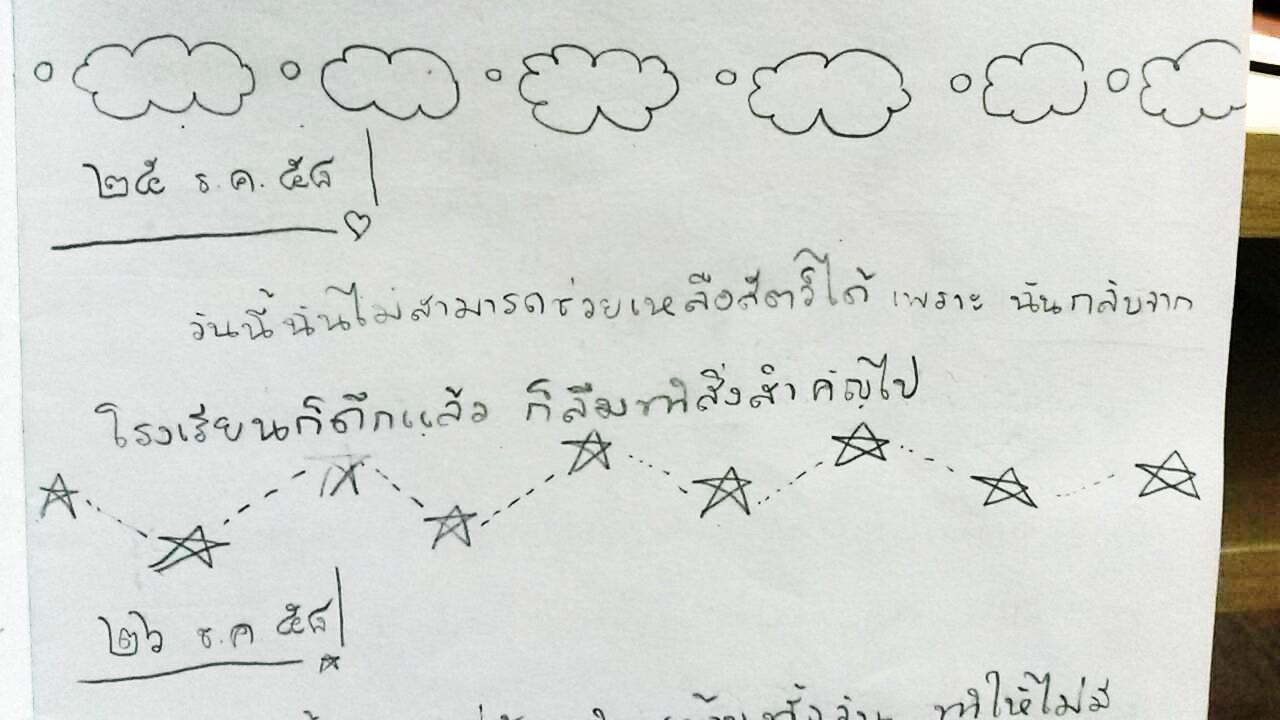 ๒๕ ธ.ค. ๕๘
วันนี้ฉันไม่สามารถช่วยเหลือสัตว์ได้ เพราะ ฉันกลับจาก
โรงเรียนก็ดึกแล้ว ก็ลืมทำสิ่งสำคัญไป
๒๖ ธ.ค ๕๘
ทำให้ไม่มี